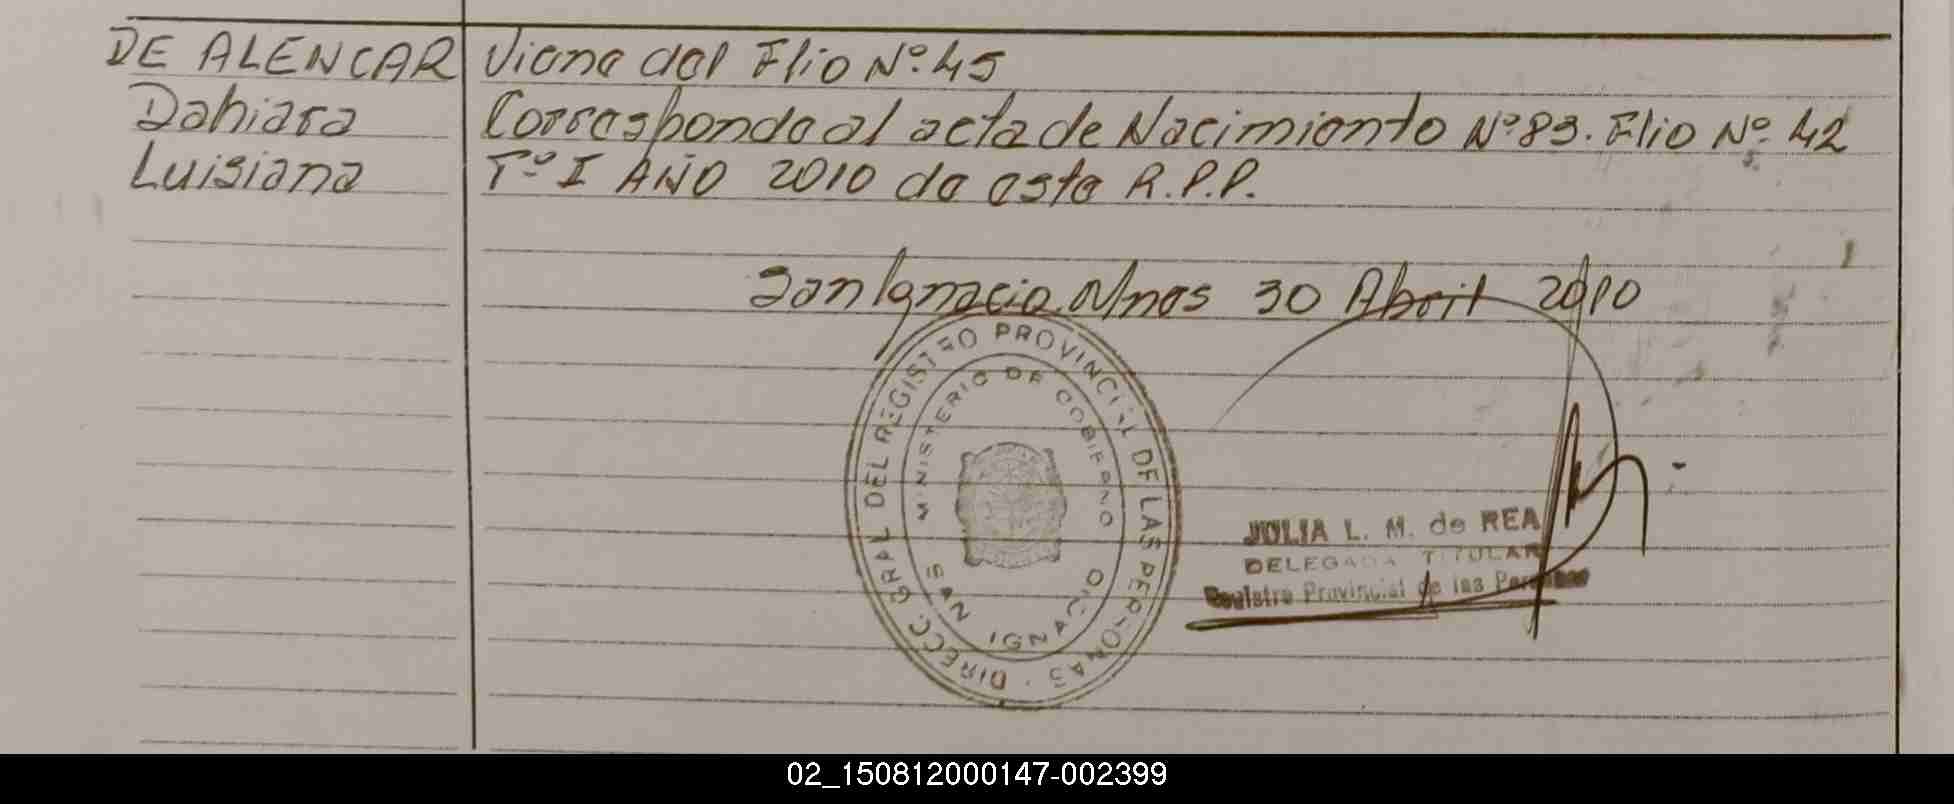 DE ALENCAR Viene del Flio Nº 45
Dahiara Corresponde al acta de Nacimiento Nº 83. Flio Nº 42
Luisiana Tº I AÑO 2010 de este R.P.P.
San Ignacio Mnes 30 Abril 2010
DIRECC. GRAL DEL REGISTRO PROVINCIAL DE LAS PERSONAS
MINISTERIO DE GOBIERNO
SAN IGNACIO
JULIA L. M. de REA
DELEGADA TITULAR
Registro Provincial de las Personas
02_150812000147-002399